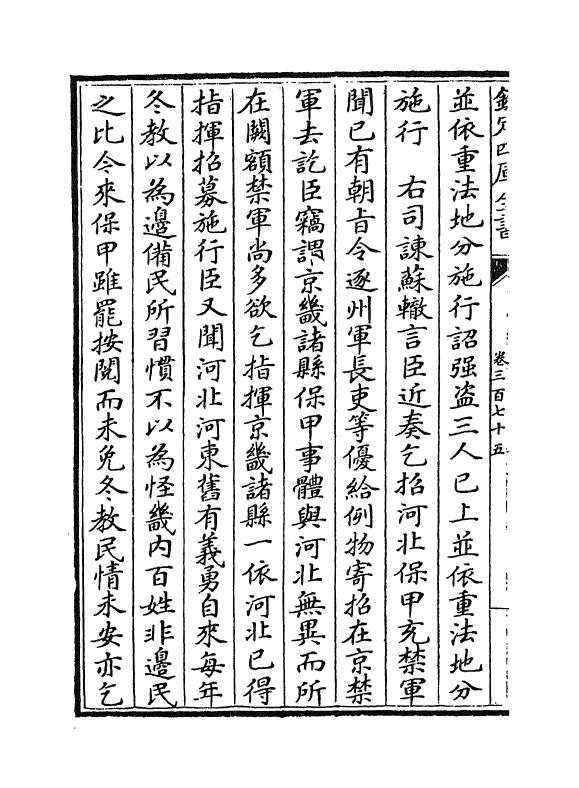 欽定四庫全書
卷三百七十五
並依重法地分施行詔强盗三人已上並依重法地分
施行　右司諫蘇轍言臣近奏乞招河北保甲充禁軍
聞已有朝旨令逐州軍長吏等優給例物寄招在京禁
軍去訖臣竊謂京畿諸縣保甲事體與河北無異而所
在闕額禁軍尚多欲乞指揮京畿諸縣一依河北已得
指揮招募施行臣又聞河北河東舊有義勇自來每年
冬教以為邊備民所習慣不以為怪畿内百姓非邊民
之比今來保甲雖罷按閱而未免冬教民情未安亦乞